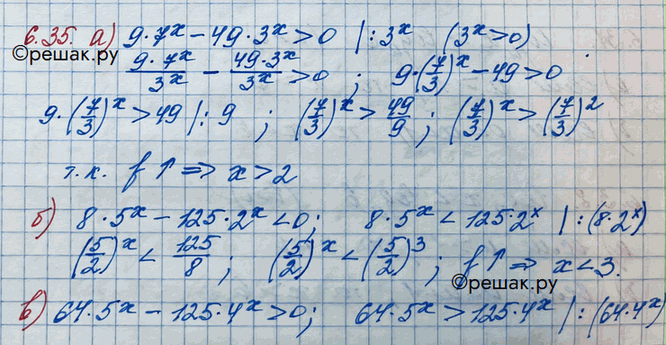 6.35. а) 9·7^x − 49·3^x > 0 | : 3^x (3^x > 0)
©решак.ру
9·7^x/3^x − 49·3^x/3^x > 0 ; 9·(7/3)^x − 49 > 0
9·(7/3)^x > 49 | : 9 ; (7/3)^x > 49/9 ; (7/3)^x > (7/3)^2
т.к. f ↑ ⇒ x > 2
б) 8·5^x − 125·2^x < 0; 8·5^x < 125·2^x | : (8·2^x)
(5/2)^x < 125/8 ; (5/2)^x < (5/2)^3 ; f ↑ ⇒ x < 3.
©решак.ру
в) 64·5^x − 125·4^x > 0; 64·5^x > 125·4^x | : (64·4^x)